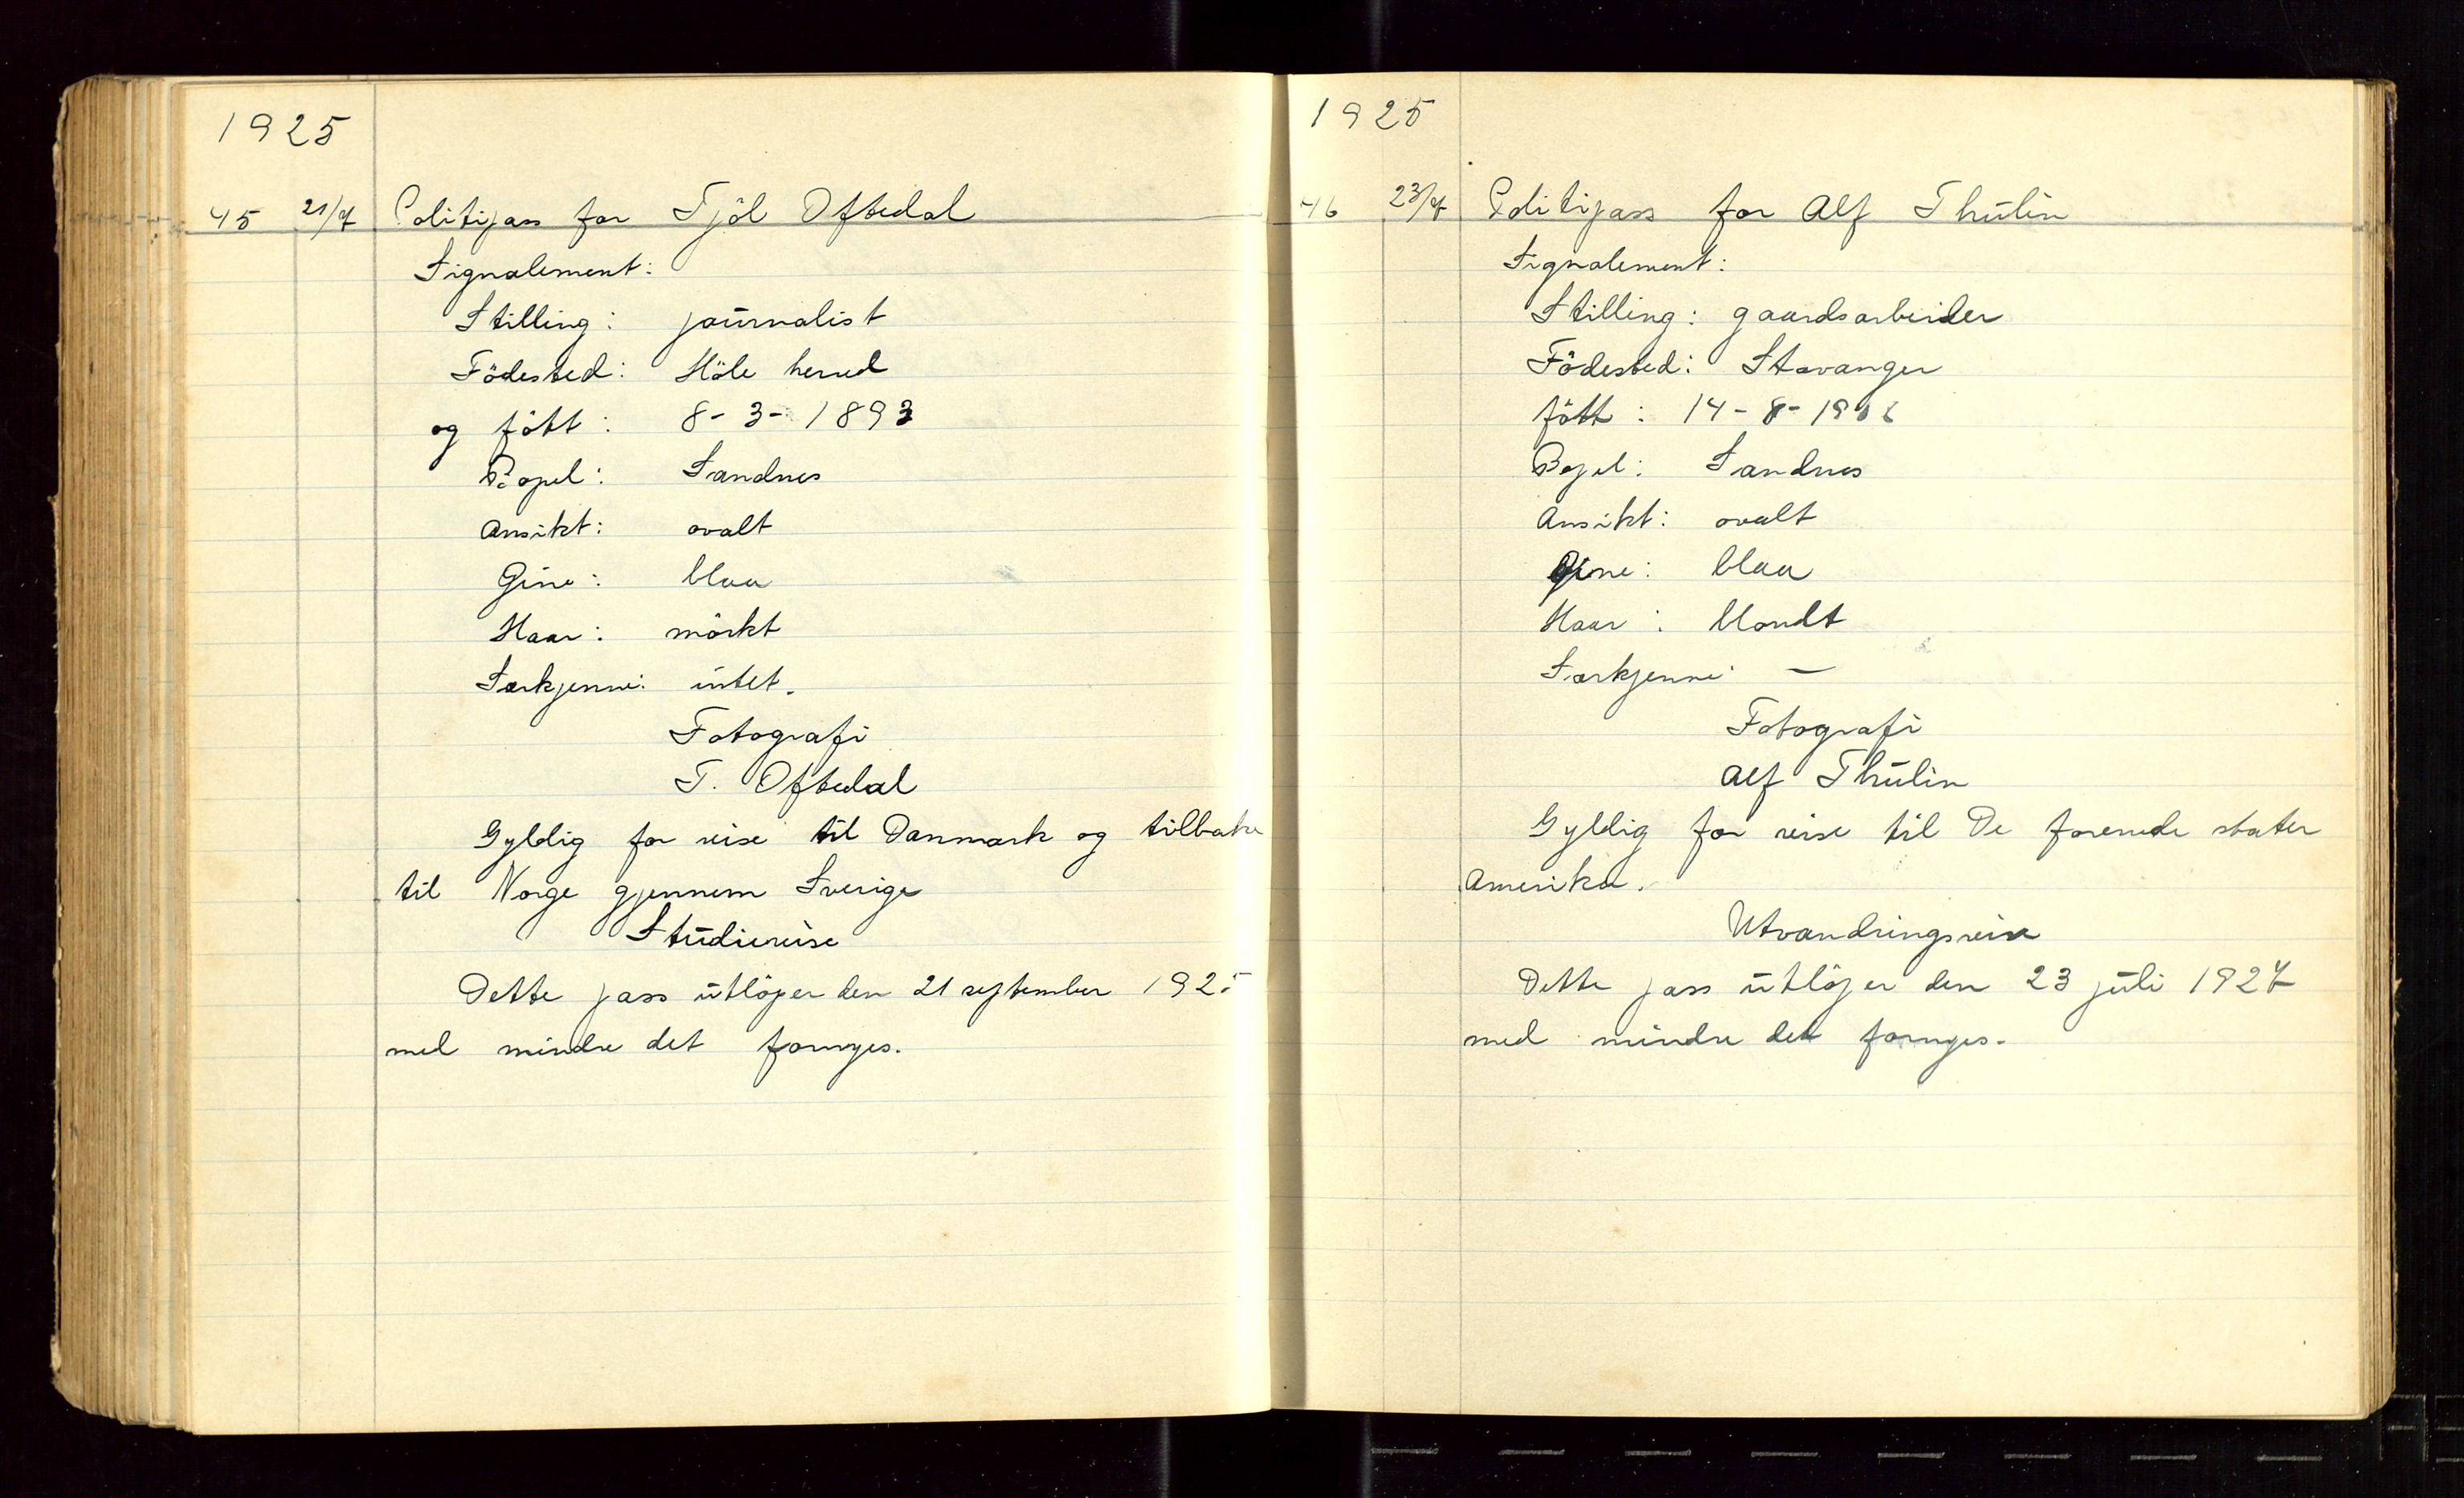 1925
45 21/7 Politipass for Tjöl Oftedal
Signalement:
Stilling: journalist
Födested: Höle herred
og född: 8-3-1893
Bopel: Sandnes
Ansikt: ovalt
Öine: blaa
Haar: mörkt
Særkjenne: intet.
Fotografi
T. Oftedal
Gyldig for reise til Danmark og tilbake
til Norge gjennem Sverige
Studiereise
Dette pass utlöper den 21 september 1925
med mindre det fornyes.
1925
46 23/7 Politipass for Alf Thulin
Signalement:
Stilling: gaardsarbeider
Födested: Stavanger
fött: 14-8-
Bopel: Sandnes
Ansikt: ovalt
Öine: blaa
Haar: blondt
Særkjenne: —
Fotografi
Alf Thulin
Gyldig for reise til De forenede stater
Amerika.
Utvandringsreise
Dette pass utlöper den 23 juli 1927
med mindre det fornyes.